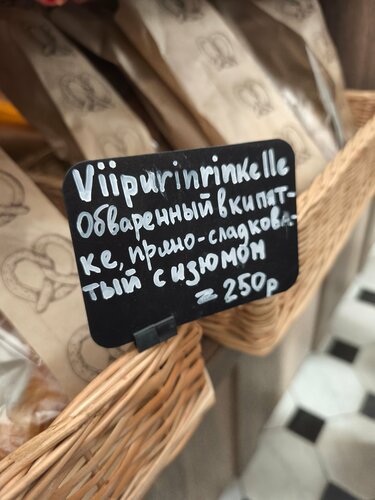 Viipurinrinkelle
Обваренный в кипят-
ке, пряно-сладкова-
тый с изюмом
250р